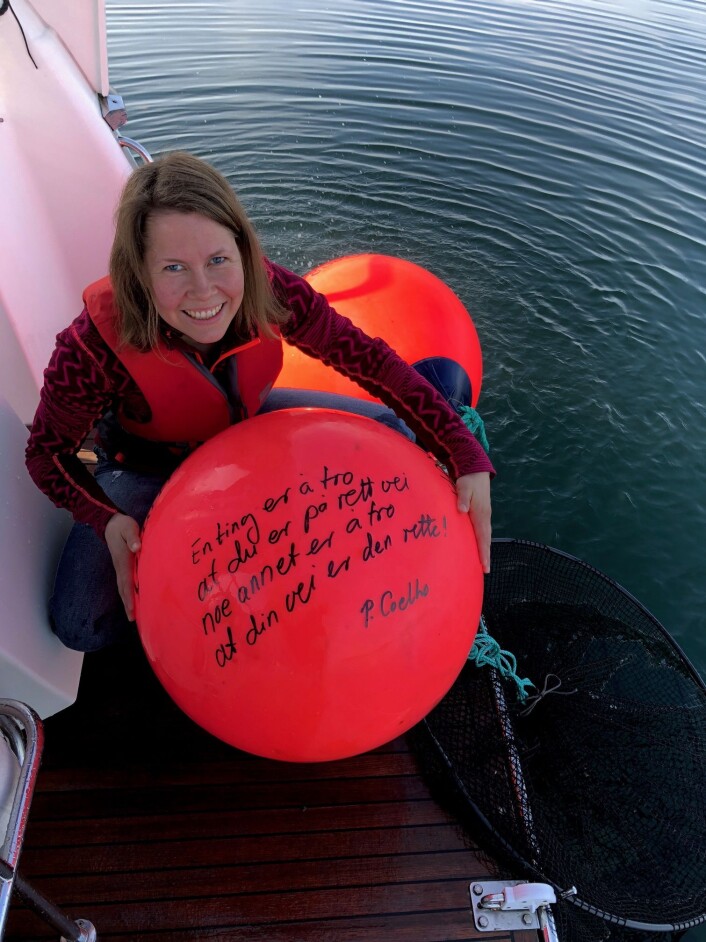 Én ting er å tro
at du er på rett vei
noe annet er å tro
at din vei er den rette!
P. Coelho